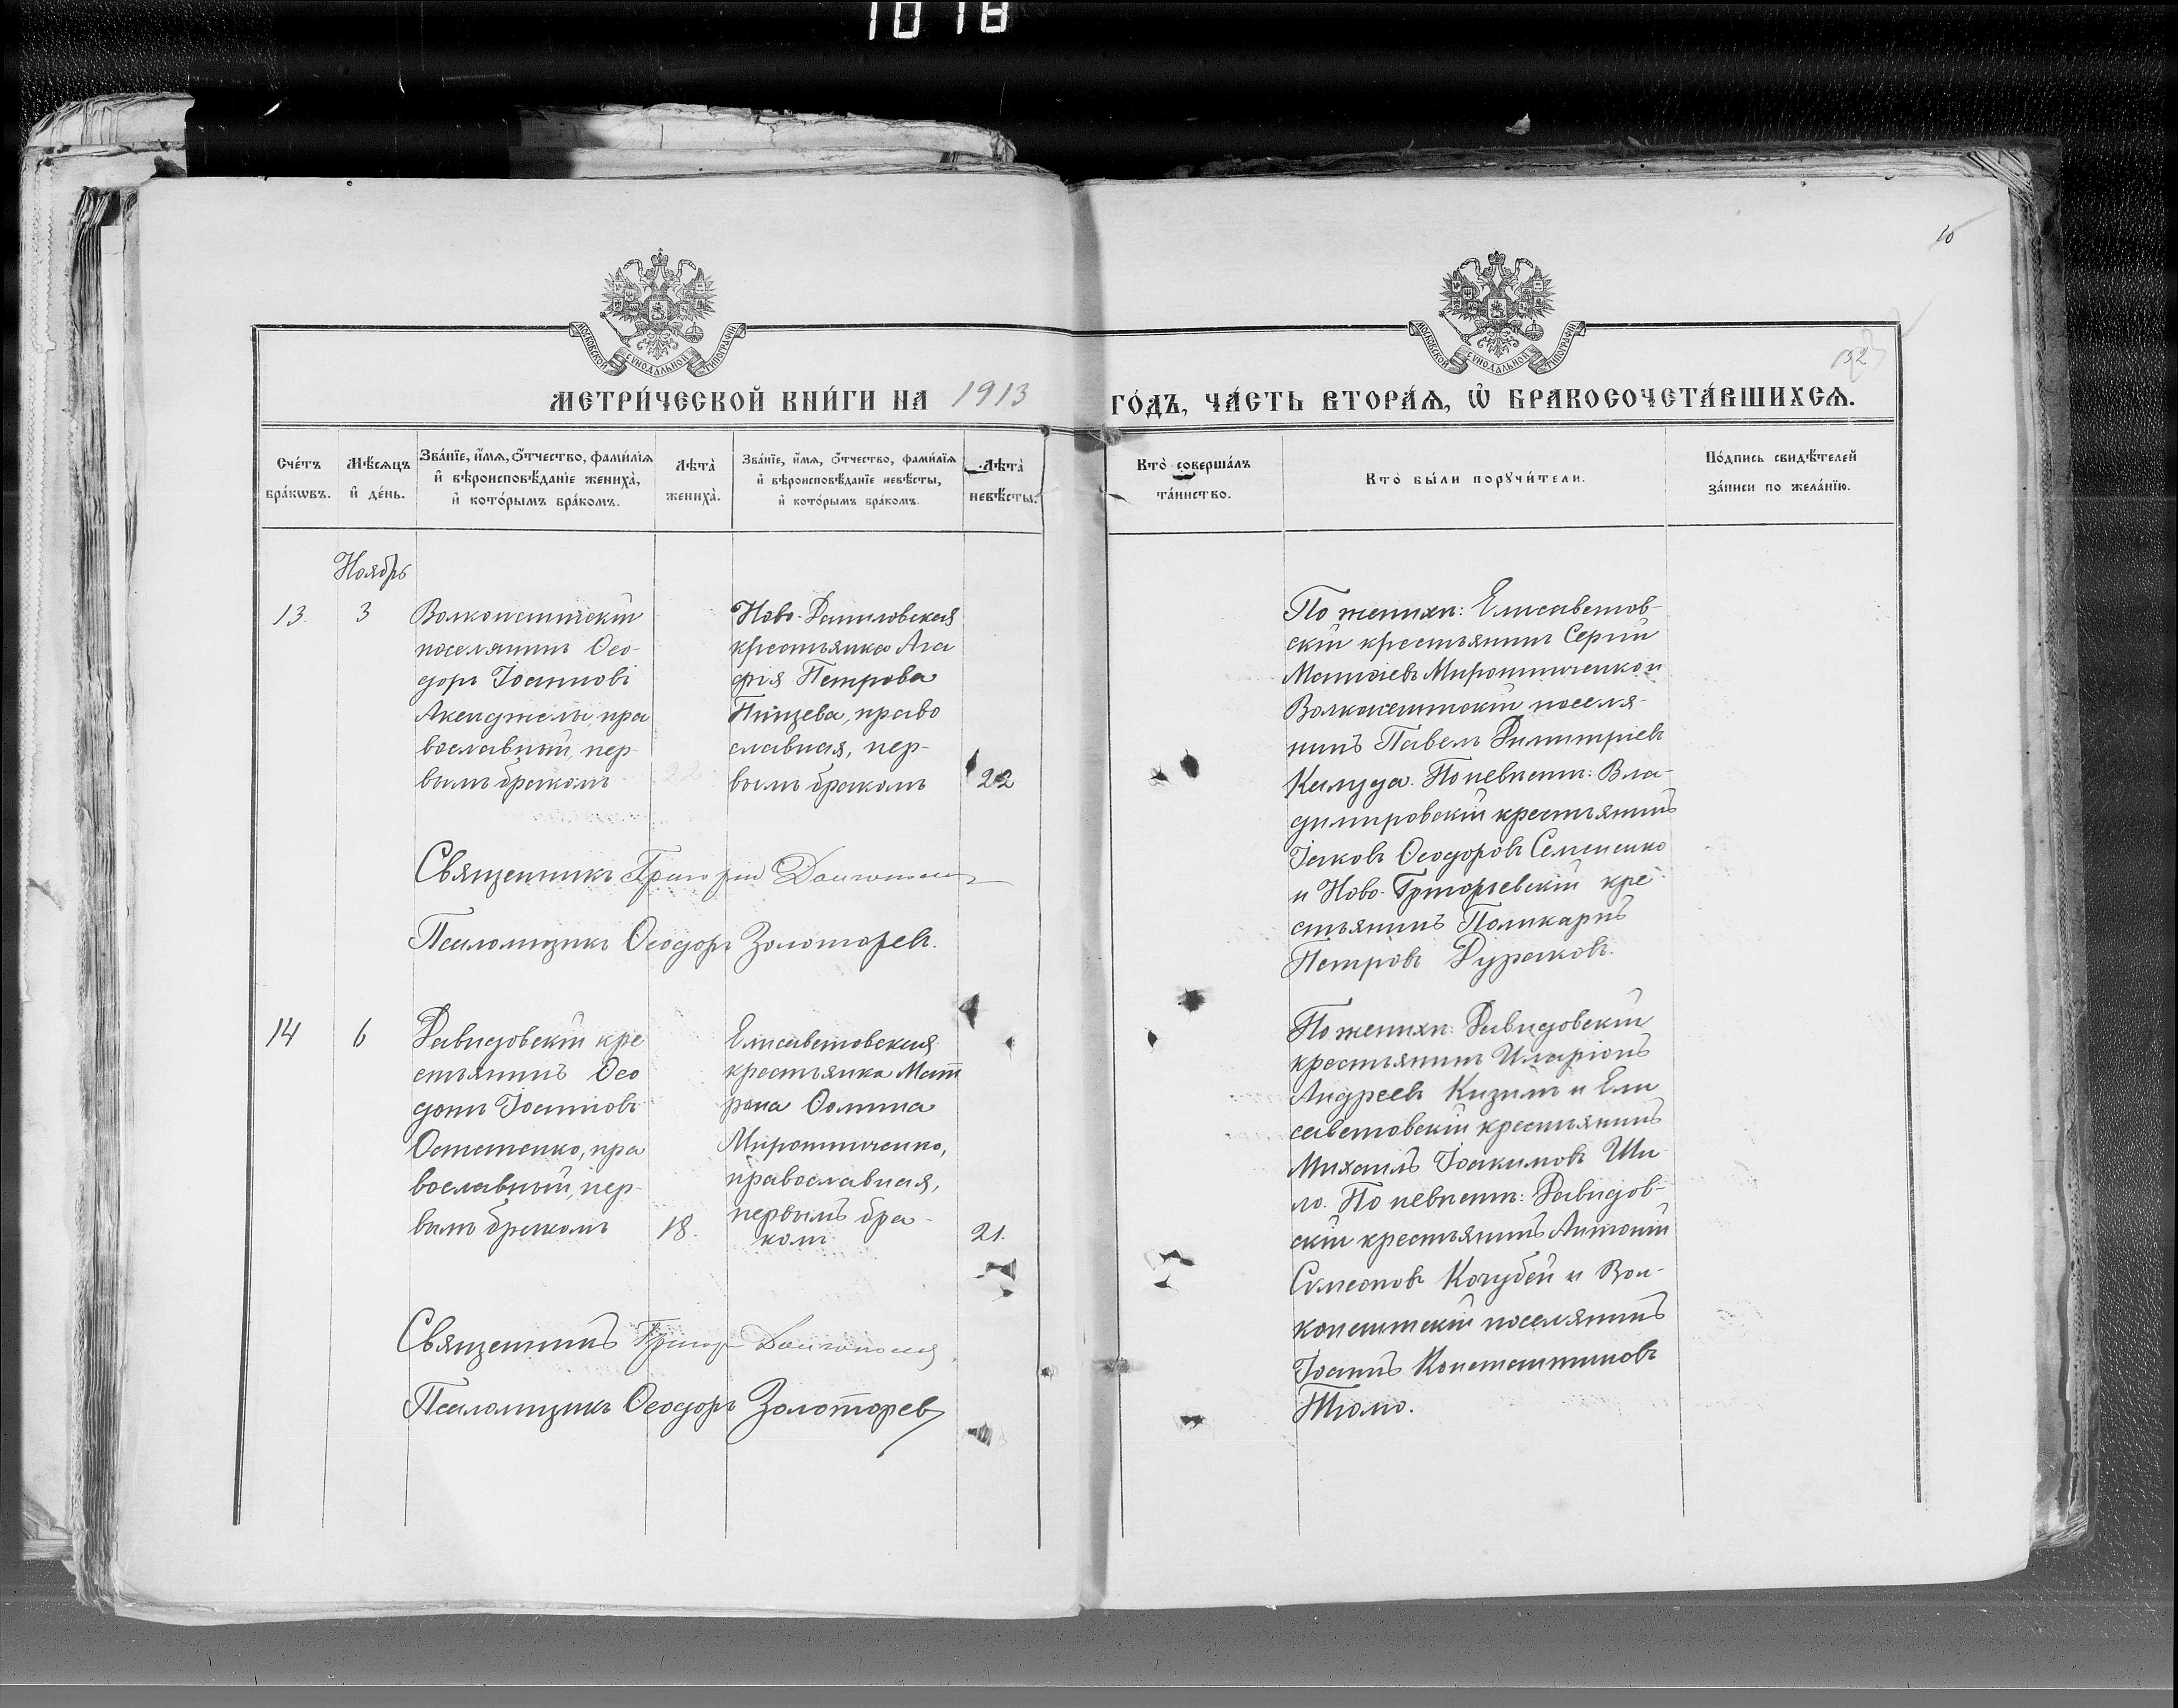 1018
10
152
МОСКОВСКОЙ СѴНОДАЛЬНОЙ ТИПОГРАФІИ
МОСКОВСКОЙ СѴНОДАЛЬНОЙ ТИПОГРАФІИ
МЕТРИ́ЧЕСКОЙ КНИ́ГИ НА 1913 ГО́ДЪ, ЧА́СТЬ ВТОРА́Ѧ, Ѡ҆ БРАКОСОЧЕТА́ВШИХСѦ.
Сче́тъ
бра́кѡвъ.
Мѣ́сѧцъ
и҆ де́нь.
Зва́нїе, и҆́мѧ, ѻ҆́тчество, фами́лїѧ
и҆ вѣроисповѣ́данїе жениха̀,
и҆ кото́рымъ бра́комъ.
Лѣта̀
жениха̀.
Зва́нїе, и҆́мѧ, ѻ҆́тчество, фами́лїѧ
и҆ вѣроисповѣ́данїе невѣ́сты,
и҆ кото́рымъ бра́комъ.
Лѣта̀
невѣ́сты.
Кто̀ соверша́лъ
та́инство.
Кто̀ бы́ли порꙋчи́тели.
По́дпись свидѣ́телей
за́писи по жела́нїю.
Ноябрь
13.
3
Волконештскій
поселянинъ Ѳео-
доръ Іоанновъ
пра
вославный, пер-
вымъ бракомъ
22
Ново-Даниловская
крестьянка Ага
фія Петрова
православная, пер-
вымъ бракомъ
22
Священникъ Григорій
Псаломщикъ Ѳеодоръ Золоторевъ.
По женихѣ: Елисаветов-
скій крестьянинъ Сергій
Матѳіевъ Мирошниченко и
Волконештскій поселя-
нинъ Павелъ Димитріевъ
По невѣстѣ: Вла-
димировскій крестьянинъ
Іаковъ Ѳеодоровъ Семененко
и Ново-Григорьевскій кре-
стьянинъ Поликарпъ
Петровъ Дураковъ.
14
6
Давидовскій кре
стьянинъ Ѳео
Іоанновъ
Остапенко, пра
вославный, пер-
вымъ бракомъ
18.
Елисаветовская
крестьянка Мат
рона Ѳомина
Мирошниченко,
православная,
первымъ бра-
комъ
21.
Священникъ
Псаломщикъ Ѳеодоръ Золоторевъ
По женихѣ: Давидовскій
крестьянинъ Иларіонъ
Андреевъ Кизимъ и Ели
саветовскій крестьянинъ
Михаилъ Іоакимовъ Ши
ло. По невѣстѣ: Давидов-
скій крестьянинъ Антоній
Сѵмеоновъ Кочубей и Вол-
конештскій поселянинъ
Іоаннъ Константиновъ